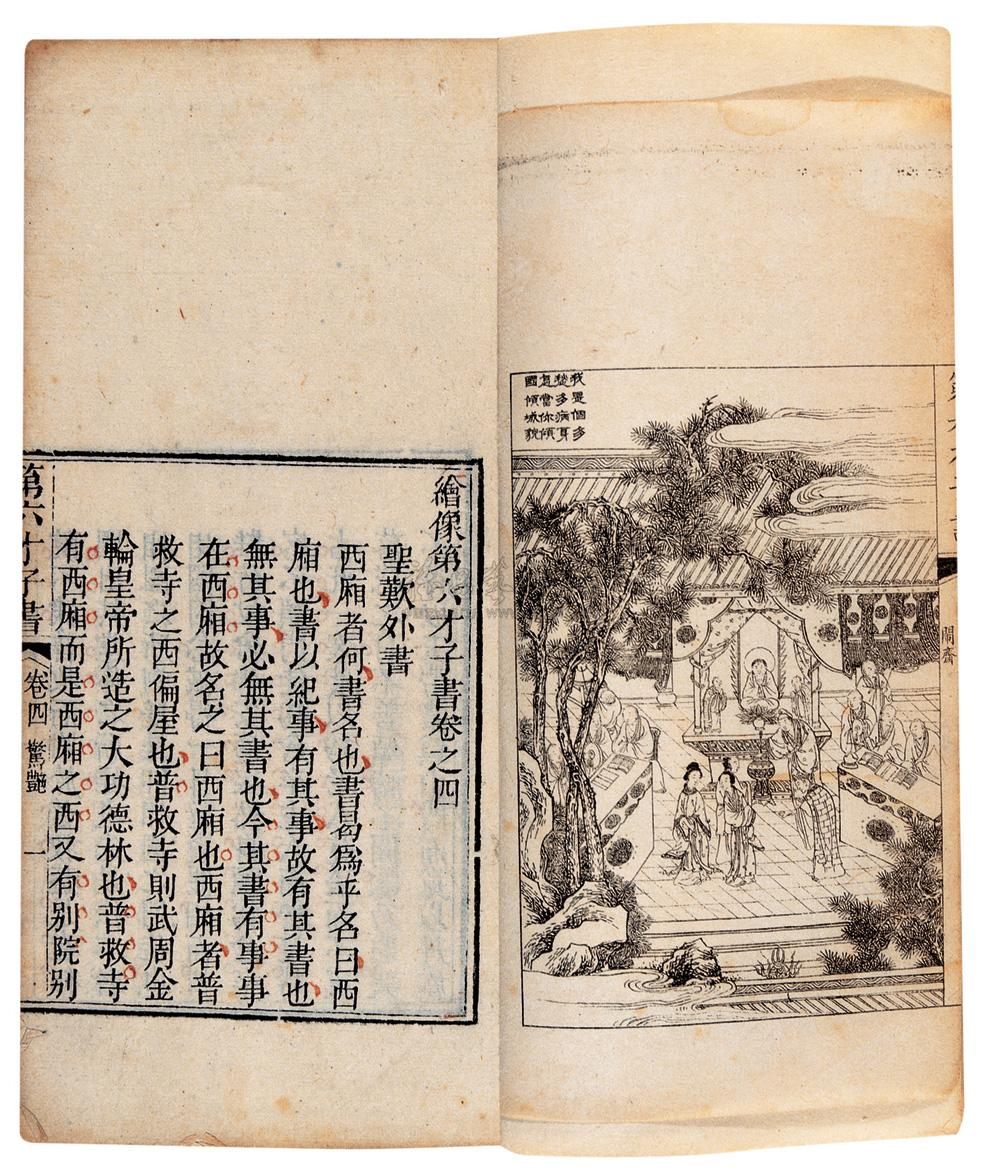 鬧齋
我是個多
愁多病身
怎當你傾
國傾城貌
繪像第六才子書卷之四
聖歎外書
西廂者何書名也書曷爲乎名曰西
廂也書以紀事有其事故有其書也
無其事必無其書也今其書有事事
在西廂故名之曰西廂也西廂者普
救寺之西偏屋也普救寺則武周金
輪皇帝所造之大功德林也普救寺
有西廂而是西廂之西又有別院別
第六才子書 卷四 驚艷 一